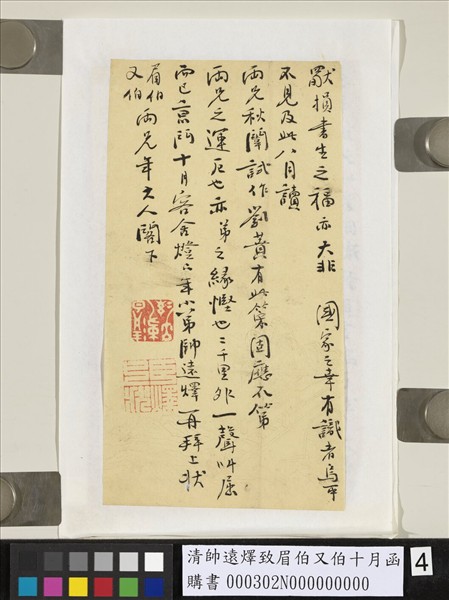 獸損書生之福亦大非　國家之幸有識者烏可
不見及此八月讀
兩兄秋闈試作劉蕡有此策固應不第
兩兄之運厄也亦弟之緣慳也二千里外一聲叫屈
而已京門十月客舍燈下年小弟師遠燡再拜上狀
眉伯
又伯 兩兄年大人閣下
清師遠燡致眉伯又伯十月函
購書 000302N000000000
4